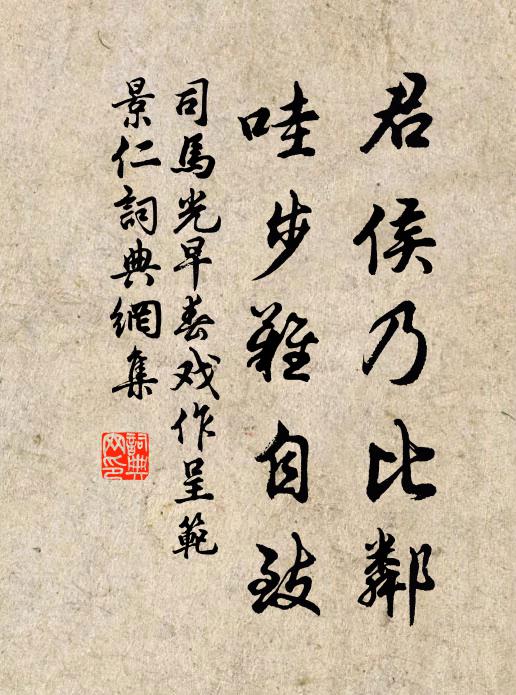 君侯乃比鄰
哇步難自致
司馬光早春戏作呈範
景仁詞典網集
詞典
网印